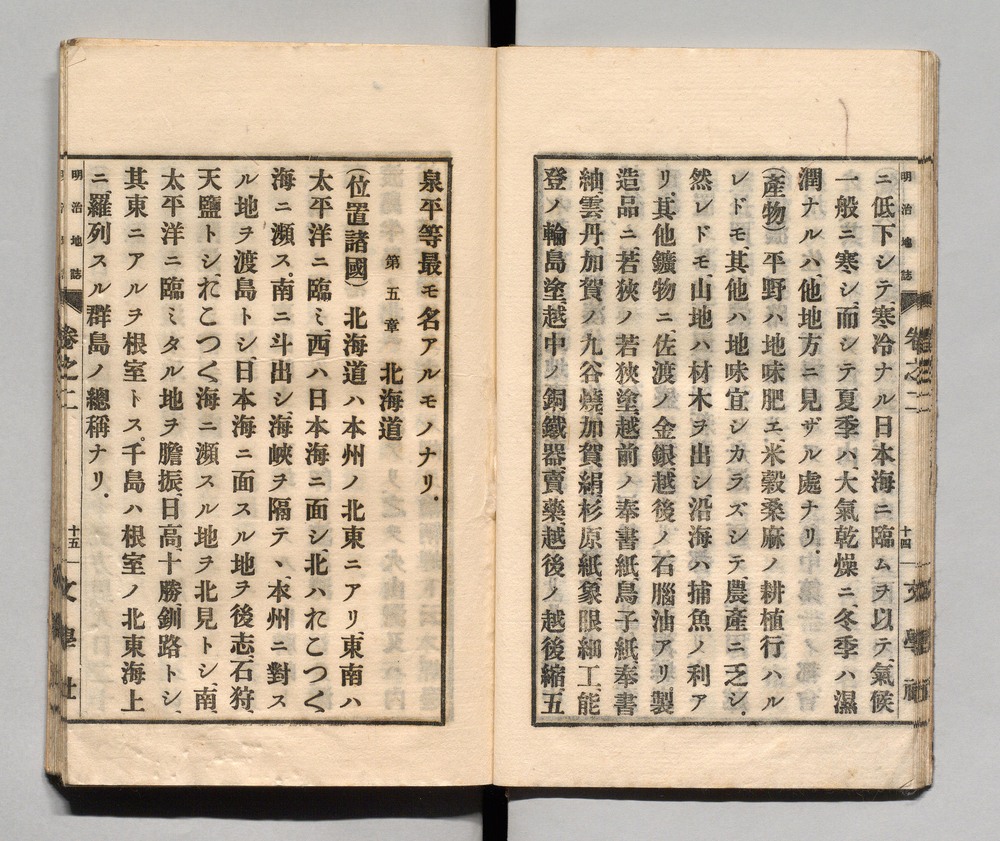 明治地誌 卷之二 十四 文學社
ニ低下シテ、寒冷ナル日本海ニ臨ムヲ以テ、氣候
一般ニ寒シ、而シテ夏季ハ、大氣乾燥ニ、冬季ハ濕
潤ナルハ、他地方ニ見ザル處ナリ.
(產物) 平野ハ地味肥エ、米穀桑麻ノ耕植行ハル
レドモ、其他ハ地味宜シカラズシテ、農產ニ乏シ.
然レドモ、山地ハ材木ヲ出シ、沿海ハ捕魚ノ利ア
リ.其他鑛物ニ、佐渡ノ金銀、越後ノ石腦油アリ、製
造品ニ、若狹ノ若狹塗、越前ノ奉書紙、鳥子紙、奉書
紬、雲丹、加賀ノ九谷燒、加賀絹、杉原紙、象眼細工、能
登ノ輪島塗、越中ノ銅鐵器、賣藥、越後ノ越後縮、五
泉平等最モ名アルモノナリ.
第五章 北海道
(位置諸國) 北海道ハ本州ノ北東ニアリ、東南ハ
太平洋ニ臨ミ、西ハ日本海ニ面シ、北ハれこつく
海ニ瀕ス.南ニ斗出シ、海峽ヲ隔テヽ、本州ニ對ス
ル地ヲ渡島トシ、日本海ニ面スル地ヲ後志、石狩、
天鹽トシ、れこつく海ニ瀕スル地ヲ北見トシ、南、
太平洋ニ臨ミタル地ヲ膽振、日高、十勝、釧路トシ、
其東ニアルヲ根室トス.千島ハ根室ノ北東海上
ニ、羅列スル群島ノ總稱ナリ.
明治地誌 卷之二 十五 文學社